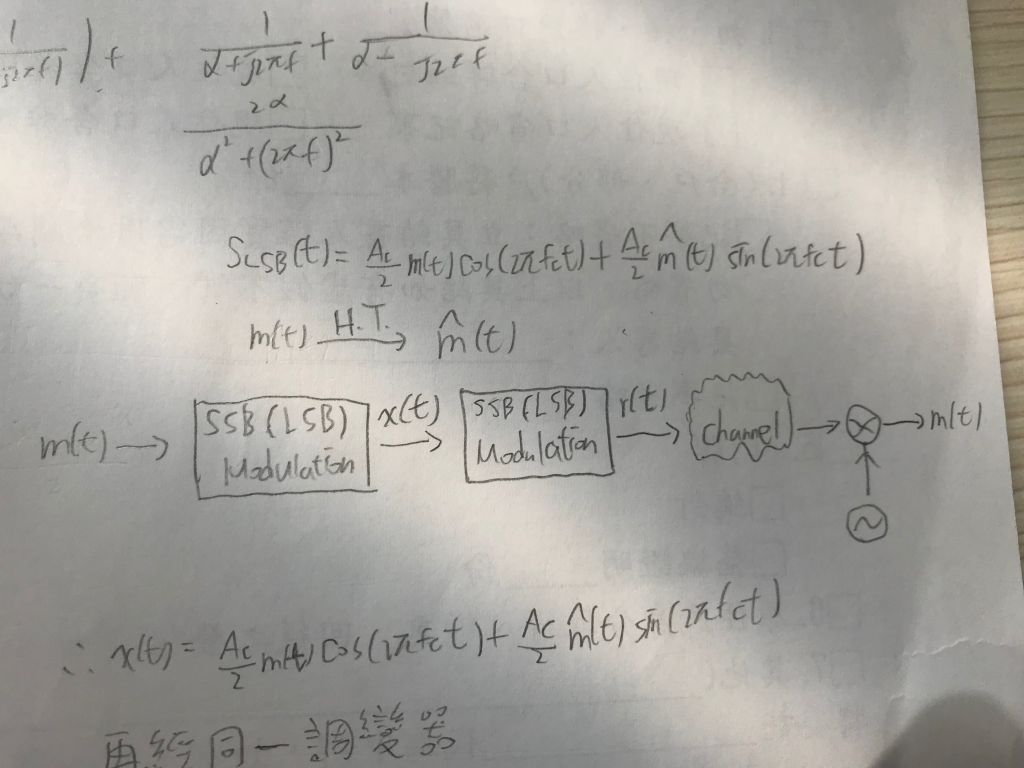 1/(j2πf)) + 1/(α+j2πf) + 1/(α-j2πf)
2α/(α²+(2πf)²)
S_LSB(t) = Ac/2 m(t) cos(2πfct) + Ac/2 m̂(t) sin(2πfct)
m(t) H.T.→ m̂(t)
m(t) → SSB (LSB) Modulation x(t) → SSB (LSB) Modulation r(t) → channel → ⊗ → m(t)
~
∴ x(t) = Ac/2 m(t) cos(2πfct) + Ac/2 m̂(t) sin(2πfct)
再經同一調變器